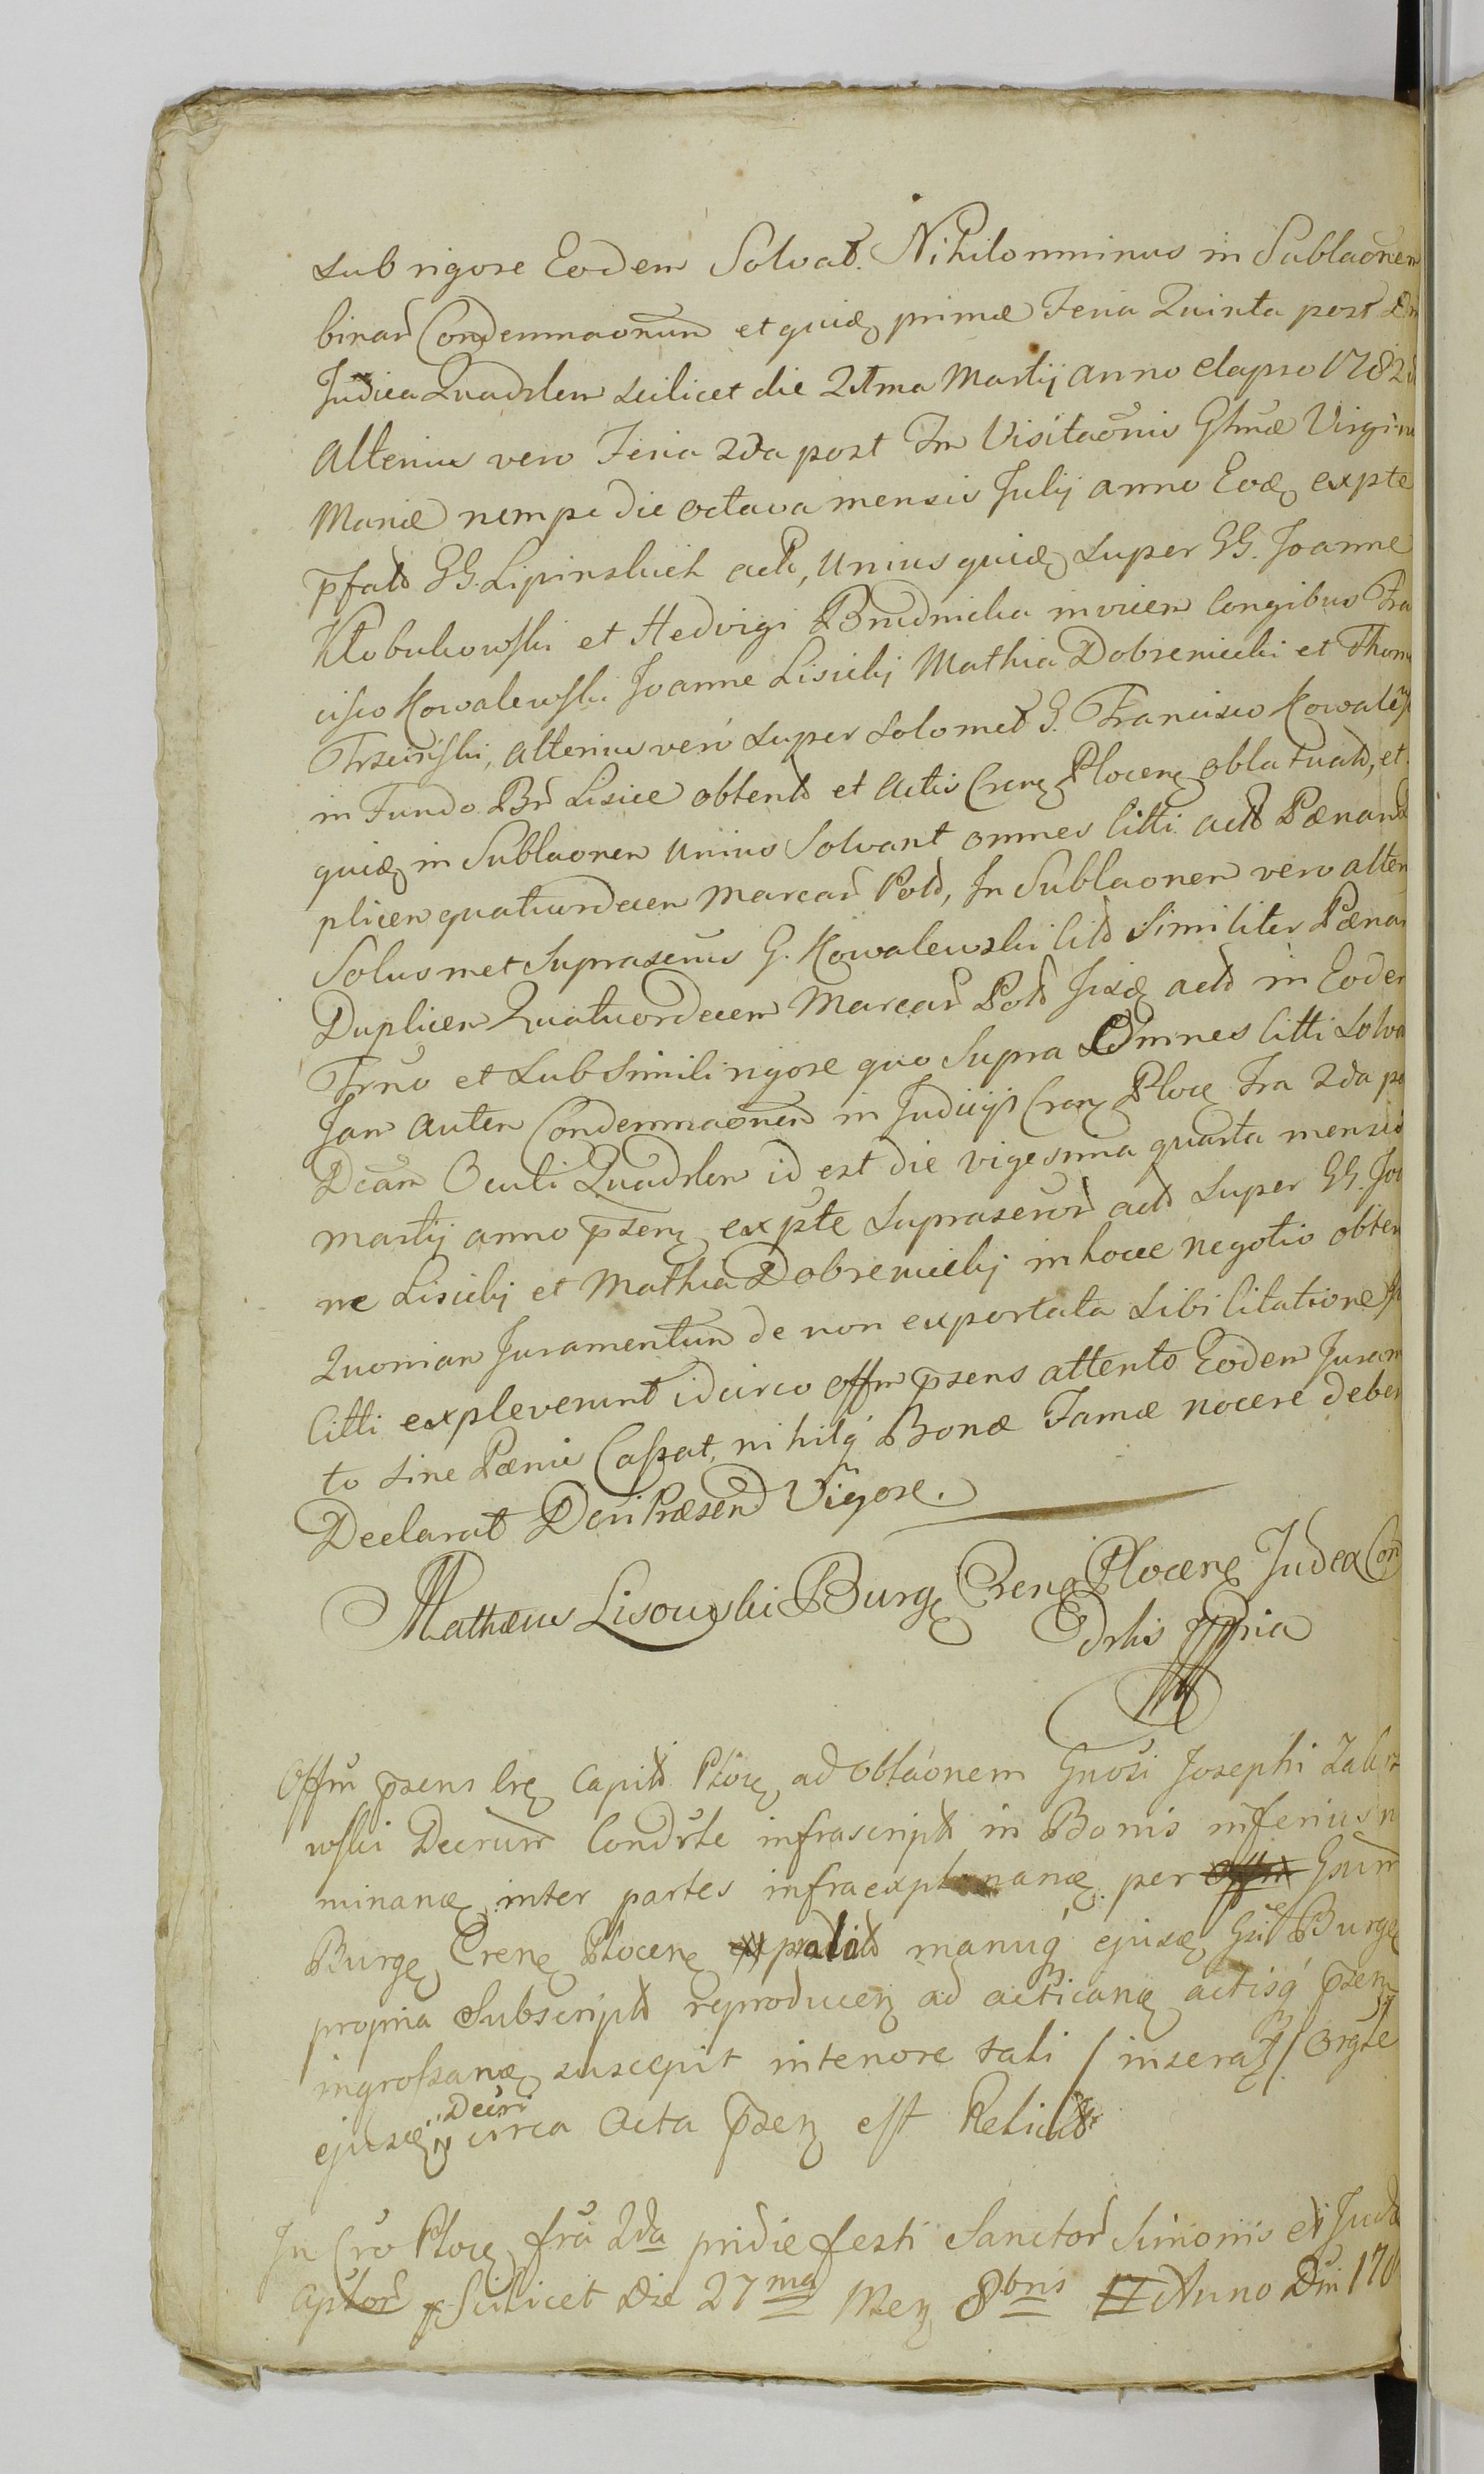 sub rigore Eodem Solvat. Nihilomminus in Sublaonem
binar Condemnaonum et quid primæ Feria Quinta post
Judica Quadrlem scilicet die 21ma Martij anno elapso 1782
Alterius vero Feria 2da post Fm Visitaonis Glnæ Virgin
Mariæ nempe die octava mensis Julij anno Eod expte
pfats GG. Lipinskich acts, unius quid super GG. Joanne
Kłobukowski et Hedvigi Brudnicka invicem Congibus Fra
cisco Kowalewski Joanne Lisickij Mathia Dobrenicki et Thom
Trzcinski, alterius vero super solomet G. Francisco Kowalew
in Fundo Br Lisice obtents et Actis Cren Plocen oblatuats, et
quid in Sublaonem unius Solvant omnes Citti acts Pænam
plicem quatuordecem Marcar Pols, In Sublaonem vero alter
Solusmet Suprascrius G. Kowalewski Cits Similiter Pænam
Duplicem Quatuordecem Marcar Pols Jisd acts in Eodem
Frno et Sub Simili rigore quo Supra Omnes Citti Solva
Jam autem Condemnaonem in Judicijs Cren Ploc Fra 2da po
Dcam Oculi Quadrlem id est die vigesima quarta mensis
martij anno psen expte Suprascror acts super GG. Joa
ne Lisickij et Mathia Dobrenickij in hocce negotio obten
Quoniam Juramentum de non exportata Sibi Citatione
Citti expleverunt idcirco offm psens attento Eodem Juram
to sine Pænis Cassat, nihilq Bonæ Famæ nocere deber
Declarat Dcri Præsen Vigore.
Mathæus Lisowski Burg Cren Plocen Judex Con
Drlis mppria
Offm psens Cre Capits Ploc ad oblaonem Gnosi Josephi Zakrz
wski Decrum Condrle infrascripts in Bonis inferius n
minan inter partes infraexplanan per Gsum
Burg Cren Plocen prolats manuq ejusd Gsi Burg
propria Subscripts reproducen ad acticand actisq psen
ingrossand suscepit in tenore tali / inserat / Orgle
ejusd Decri circa Acta psen est Relicts
In Cro Ploc fria 2da pridie festi Sanctor Simonis et Juda
Aptor Scilicet die 27ma Men 8bris Anno Dni 178